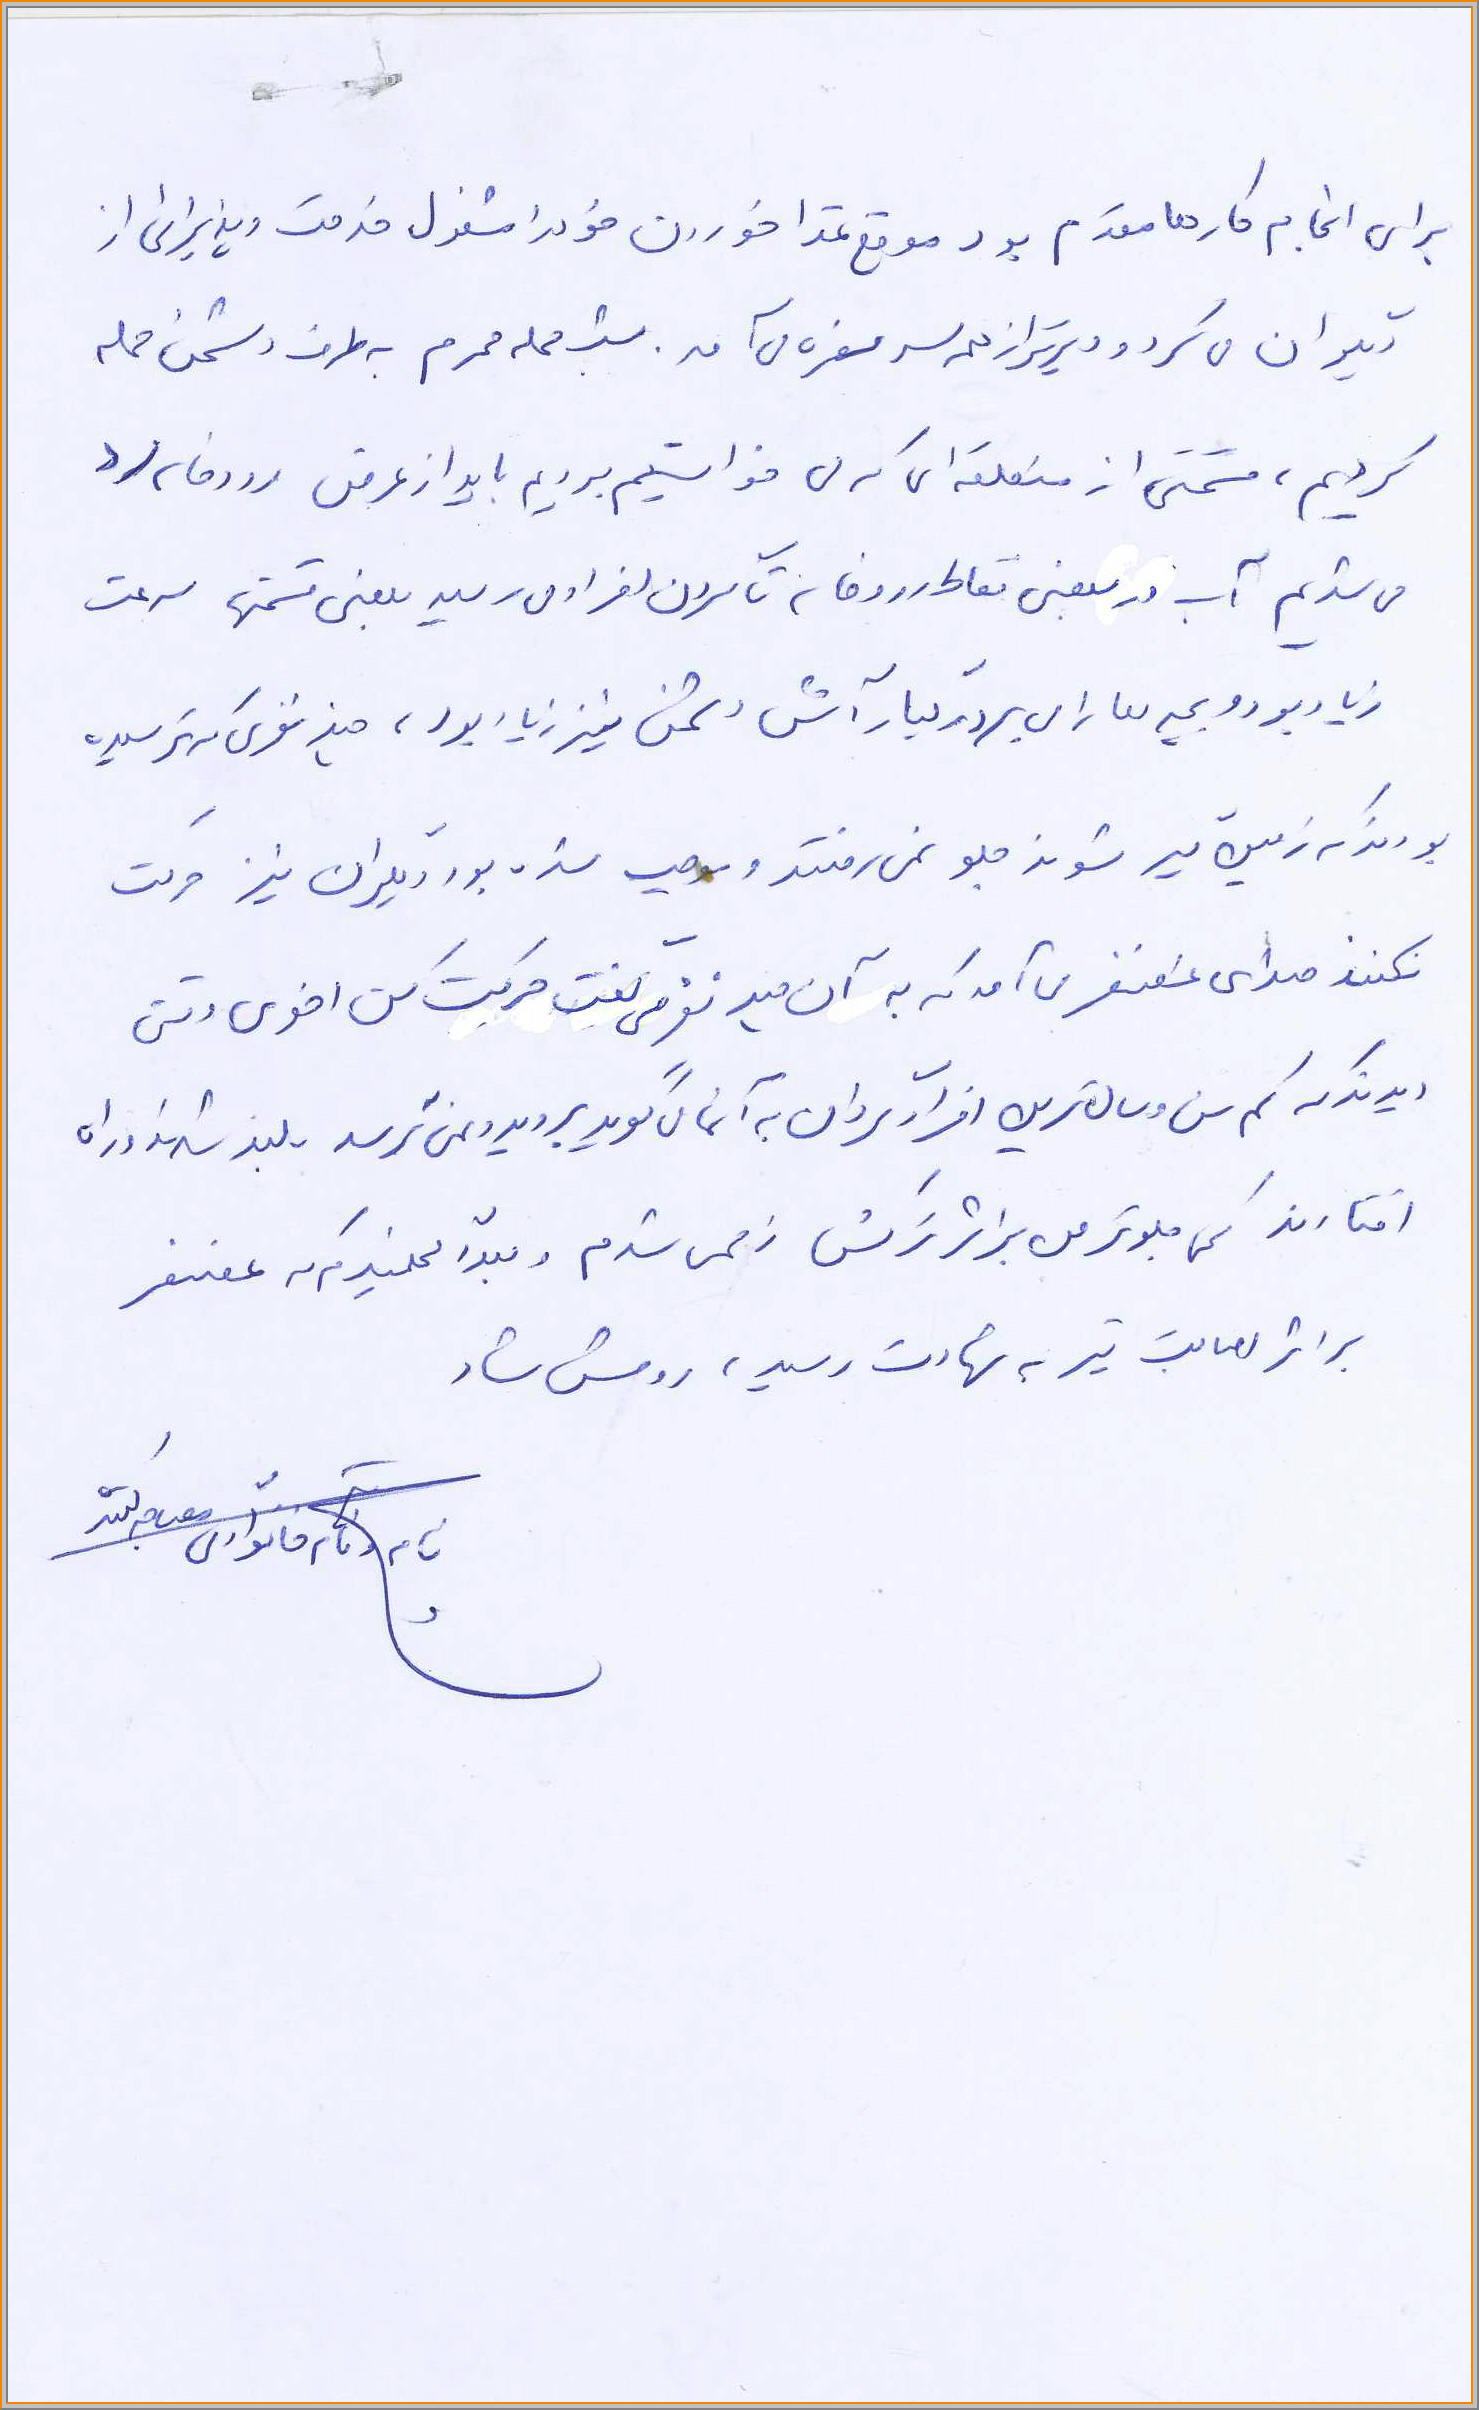 برای انجام کارها مقدم بود موقع غذا خوردن خود را مشغول خدمت و پذیرائی از
دیگران می کرد و دیرتر از همه سر سفره می آمد. شب حمله محرم به طرف دشمن حمله
کردیم، قسمتی از منطقه ای که می خواستیم برویم باید از عرض رودخانه رد
می شدیم آب در بعضی نقاط رودخانه تا گردن افراد می رسید بعضی قسمتها سرعت
زیاد بود و بچه ها را می برد یکبار آتش دشمن نیز زیاد بود، چند نفری که ترسیده
بودند که زمین گیر شوند جلو نمی رفتند و موجب شده بود دیگران نیز حرکت
نکنند صدای غضنفر می آمد که به آن چند نفر می گفت حرکت کن اخوی وقتی
دیدند که کم سن و سال ترین افراد گردان به آنها می گوید بروید و نمی ترسد بلند شدند و راه
افتادند کمی جلوتر من بر اثر ترکش زخمی شدم و بعداً فهمیدم که غضنفر
بر اثر اصابت تیر به شهادت رسید، روحش شاد
نام و نام خانوادگی مصاحبه کننده